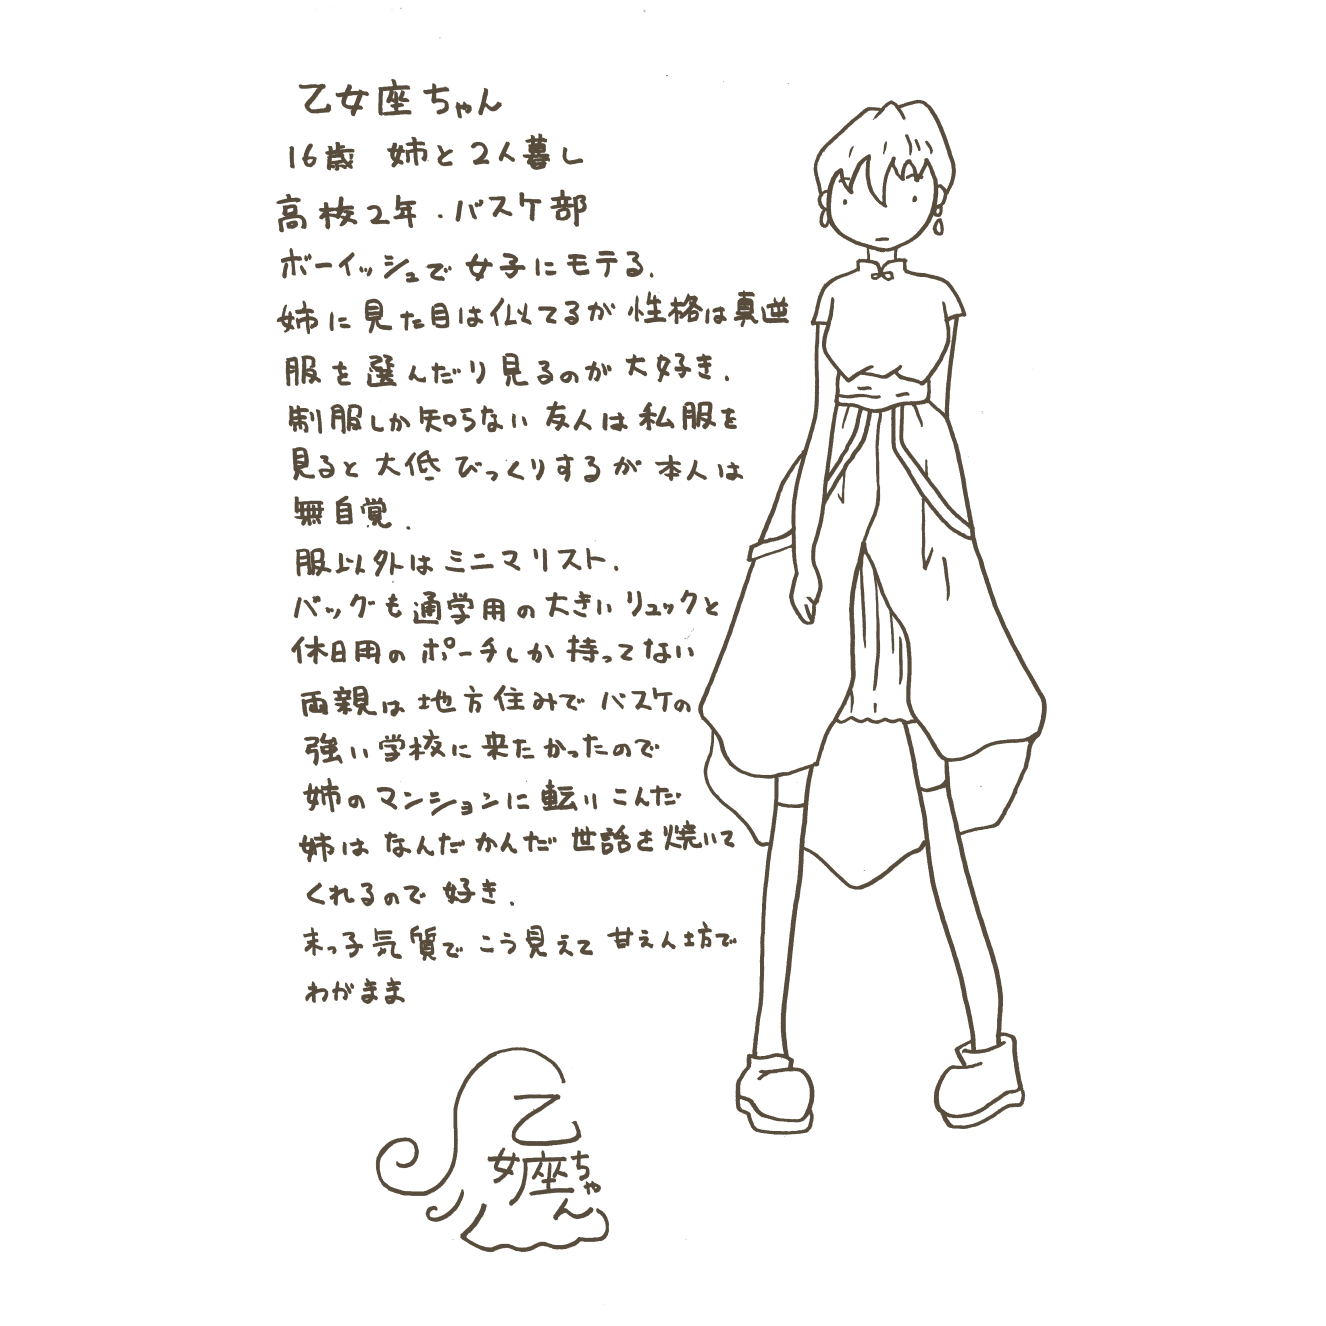 乙女座ちゃん
16歳 姉と2人暮し
高校2年.バスケ部
ボーイッシュで女子にモテる.
姉に見た目は似てるが性格は真逆
服を選んだり見るのが大好き.
制服しか知らない友人は私服を
見ると大低びっくりするが本人は
無自覚.
服以外はミニマリスト.
バッグも通学用の大きいリュックと
休日用のポーチしか持ってない
両親は地方住みでバスケの
強い学校に来たかったので
姉のマンションに転がりこんだ
姉はなんだかんだ世話を焼いて
くれるので好き.
末っ子気質でこう見えて甘えん坊で
わがまま
乙
女座ちゃん